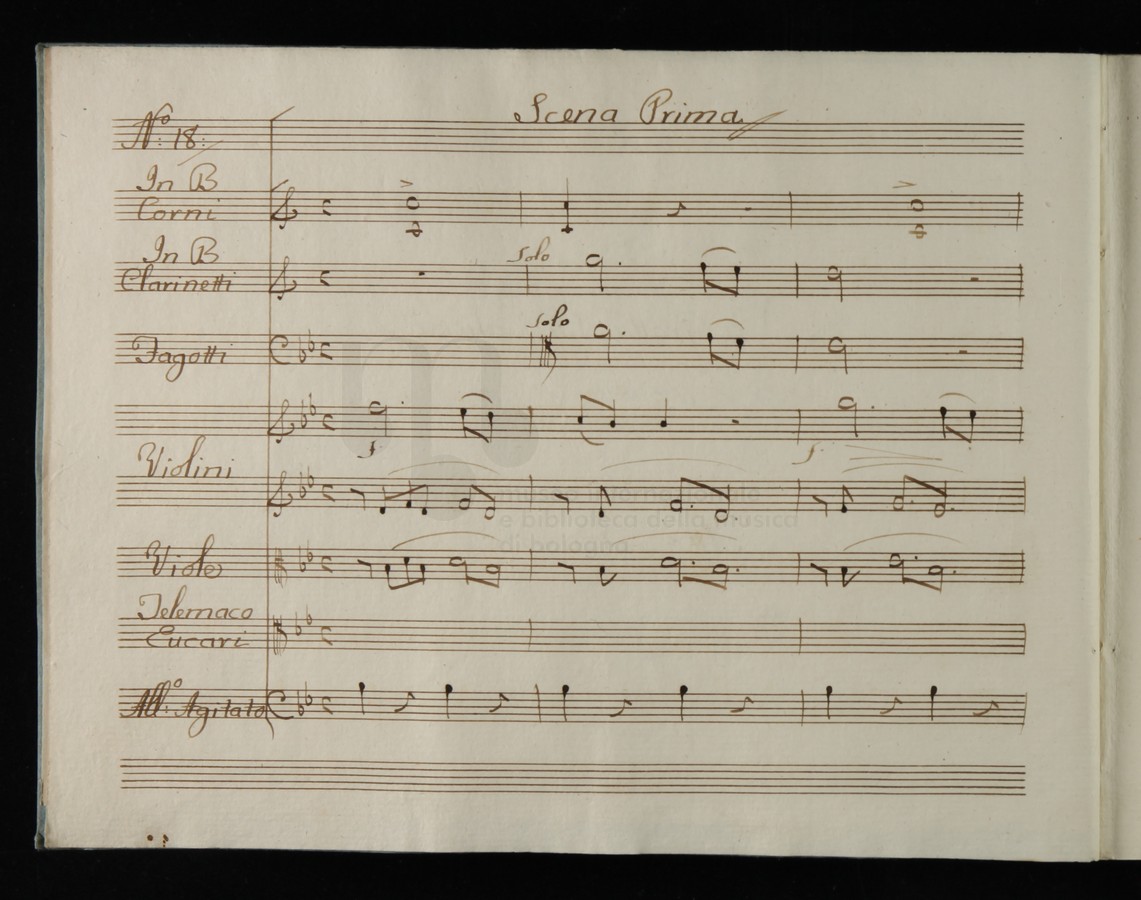 Scena Prima
No: 18:
In B
Corni
In B
Solo
Clarinetti
Solo
Fagotti
f
Violini
f
museo internazionale
e biblioteca della musica
di bologna
Viole
Telemaco
Eucari
All:o Agitato